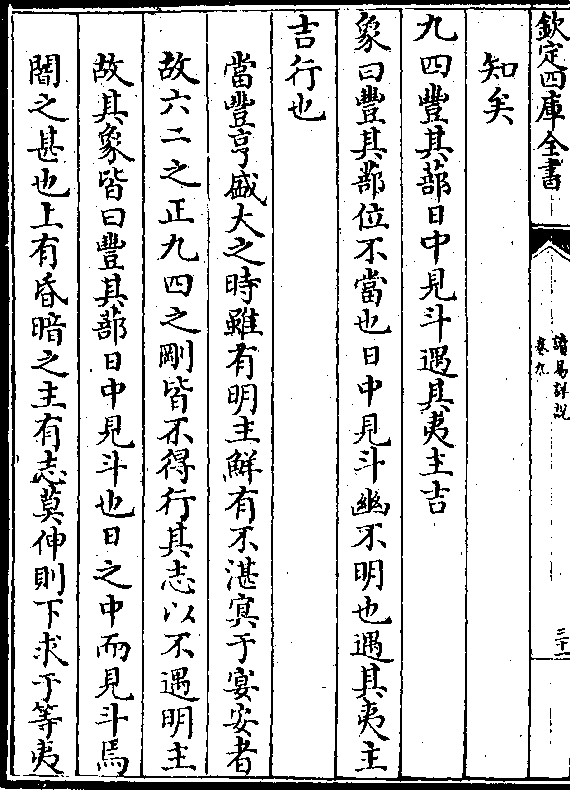 欽定四庫全書
讀易詳説
卷九
三十一
知矣
九四豐其蔀日中見斗遇其夷主吉
象曰豐其蔀位不當也日中見斗幽不明也遇其夷主
吉行也
當豐亨盛大之時雖有明主鮮有不湛㝠于宴安者
故六二之正九四之剛皆不得行其志以不遇明主
故其象皆曰豐其蔀日中見斗也日之中而見斗焉
闇之甚也上有昏暗之主有志莫伸則下求于等夷